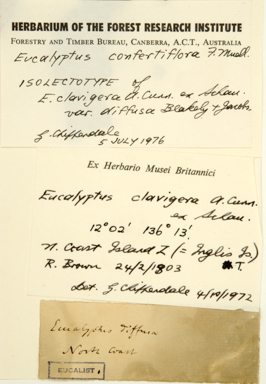 HERBARIUM OF THE FOREST RESEARCH INSTITUTE
FORESTRY AND TIMBER BUREAU, CANBERRA, A.C.T., AUSTRALIA
Eucalyptus confertiflora F. Muell.
ISOLECTOTYPE of
E. clavigera A. Cunn. ex Schau.
var. diffusa Blakely & Jacobs
G. Chippendale
5 JULY 1976
Ex Herbario Musei Britannici
Eucalyptus clavigera A. Cunn.
ex Schau.
12°02' 136°13'
N. Coast Island Z (= Inglis Is)
R. Brown 24/2/1803 T.
Det. G. Chippendale 4/10/1972
Eucalyptus diffusa
North Coast
EUCALIST